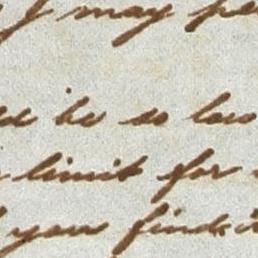 I may
be so low
limit for
your find